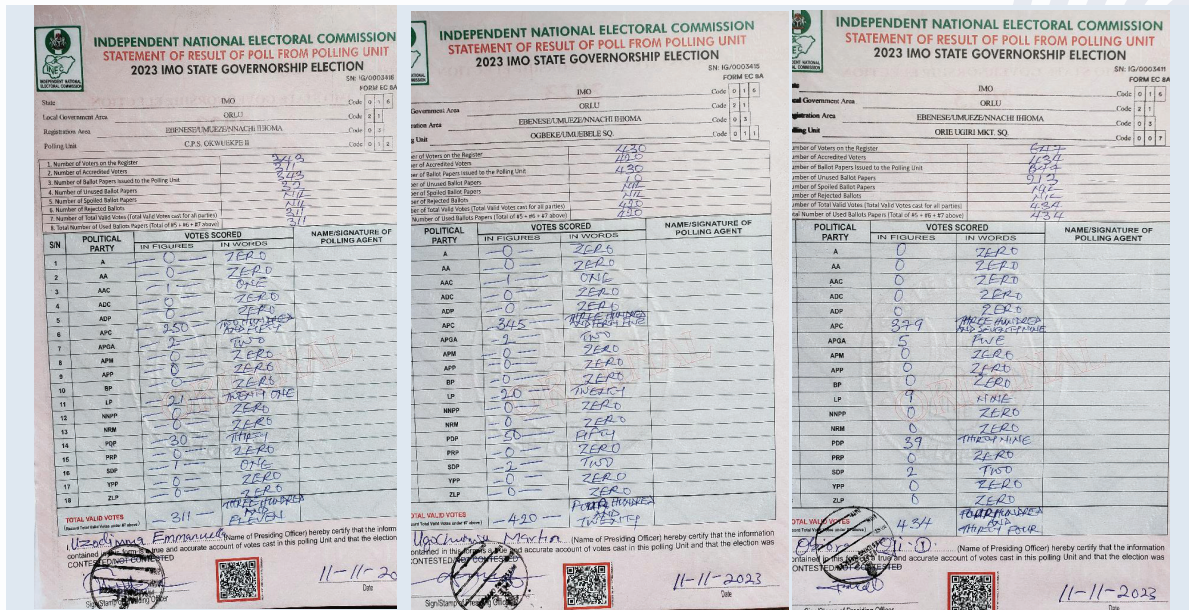 INDEPENDENT NATIONAL ELECTORAL COMMISSION
STATEMENT OF RESULT OF POLL FROM POLLING UNIT
2023 IMO STATE GOVERNORSHIP ELECTION
FORM EC 8A
State IMO Code 0 1 6
Local Government Area ORLU Code 2 1
Registration Area EBENESE/UMUEZE/NNACHI IHIOMA Code 0 3
Polling Unit C.P.S. OKWUEKPE II Code 0 1 2
1. Number of Voters on the Register 343
2. Number of Accredited Voters 311
3. Number of Ballot Papers Issued to the Polling Unit 343
4. Number of Unused Ballot Papers 32
5. Number of Spoiled Ballot Papers NIL
6. Number of Rejected Ballots NIL
7. Number of Total Valid Votes (Total Valid Votes cast for all parties) 311
8. Total Number of Used Ballots Papers (Total of #5 + #6 + #7 above) 311
S/N POLITICAL PARTY VOTES SCORED NAME/SIGNATURE OF POLLING AGENT
IN FIGURES IN WORDS
1 A 0 ZERO
2 AA 0 ZERO
3 AAC 1 ONE
4 ADC 0 ZERO
5 ADP 0 ZERO
6 APC 250
7 APGA 2 TWO
8 APM 0 ZERO
9 APP 0 ZERO
10 BP 0 ZERO
11 LP 21 TWENTY ONE
12 NNPP 0 ZERO
13 NRM 0 ZERO
14 PDP 30 THIRTY
15 PRP 0 ZERO
16 SDP 1 ONE
17 YPP 0 ZERO
18 ZLP 0 ZERO
TOTAL VALID VOTES 311 THREE HUNDRED AND ELEVEN
I, Uzodinma Emmanuela (Name of Presiding Officer) hereby certify that the inform
contained in this form is a true and accurate account of votes cast in this polling Unit and that the election
CONTESTED/NOT CONTESTED
Sign/Stamp of Presiding Officer
11-11-20
Date
INDEPENDENT NATIONAL ELECTORAL COMMISSION
STATEMENT OF RESULT OF POLL FROM POLLING UNIT
2023 IMO STATE GOVERNORSHIP ELECTION
SN: IG/0003415
FORM EC 8A
IMO Code 0 1 6
Government Area ORLU Code 2 1
ration Area EBENESE/UMUEZE/NNACHI IHIOMA Code 0 3
g Unit OGBEKE/UMUEBELE SQ. Code 0 1 1
er of Voters on the Register 430
er of Accredited Voters 420
er of Ballot Papers Issued to the Polling Unit 430
er of Unused Ballot Papers 10
r of Spoiled Ballot Papers NIL
of Rejected Ballots NIL
umber of Total Valid Votes (Total Valid Votes cast for all parties) 420
Number of Used Ballots Papers (Total of #5 + #6 + #7 above) 420
POLITICAL PARTY VOTES SCORED NAME/SIGNATURE OF POLLING AGENT
IN FIGURES IN WORDS
A 0 ZERO
AA 0 ZERO
AAC 1 ONE
ADC 0 ZERO
ADP 0 ZERO
APC 345 THREE HUNDRED AND FORTY FIVE
APGA 2 TWO
APM 0 ZERO
APP 0 ZERO
BP 0 ZERO
LP 20 TWENTY
NNPP 0 ZERO
NRM 0 ZERO
PDP 50 FIFTY
PRP 0 ZERO
SDP 2 TWO
YPP 0 ZERO
ZLP 0 ZERO
TAL VALID VOTES 420 FOUR HUNDRED AND TWENTY
Martin (Name of Presiding Officer) hereby certify that the information
ontained in this form is a true and accurate account of votes cast in this polling Unit and that the election was
CONTESTED/NOT CONTESTED
Sign/Stamp of Presiding Officer
11-11-2023
Date
INDEPENDENT NATIONAL ELECTORAL COMMISSION
STATEMENT OF RESULT OF POLL FROM POLLING UNIT
2023 IMO STATE GOVERNORSHIP ELECTION
SN: IG/0003411
FORM EC 8A
IMO Code 0 1 6
cal Government Area ORLU Code 2 1
gistration Area EBENESE/UMUEZE/NNACHI IHIOMA Code 0 3
lling Unit ORIE UGIRI MKT. SQ. Code 0 0 7
umber of Voters on the Register
umber of Accredited Voters 434
umber of Ballot Papers Issued to the Polling Unit
umber of Unused Ballot Papers 213
umber of Spoiled Ballot Papers NIL
umber of Rejected Ballots NIL
umber of Total Valid Votes (Total Valid Votes cast for all parties) 434
otal Number of Used Ballots Papers (Total of #5 + #6 + #7 above) 434
POLITICAL PARTY VOTES SCORED NAME/SIGNATURE OF POLLING AGENT
IN FIGURES IN WORDS
A 0 ZERO
AA 0 ZERO
AAC 0 ZERO
ADC 0 ZERO
ADP 0 ZERO
APC 379 THREE HUNDRED AND SEVENTY NINE
APGA 5 FIVE
APM 0 ZERO
APP 0 ZERO
BP 0 ZERO
LP 9 NINE
NNPP 0 ZERO
NRM 0 ZERO
PDP 39 THIRTY NINE
PRP 0 ZERO
SDP 2 TWO
YPP 0 ZERO
ZLP 0 ZERO
OTAL VALID VOTES 434 FOUR HUNDRED AND THIRTY FOUR
(Name of Presiding Officer) hereby certify that the information
ontained in this form is a true and accurate account of votes cast in this polling Unit and that the election was
CONTESTED/NOT CONTESTED
11-11-2023
Date